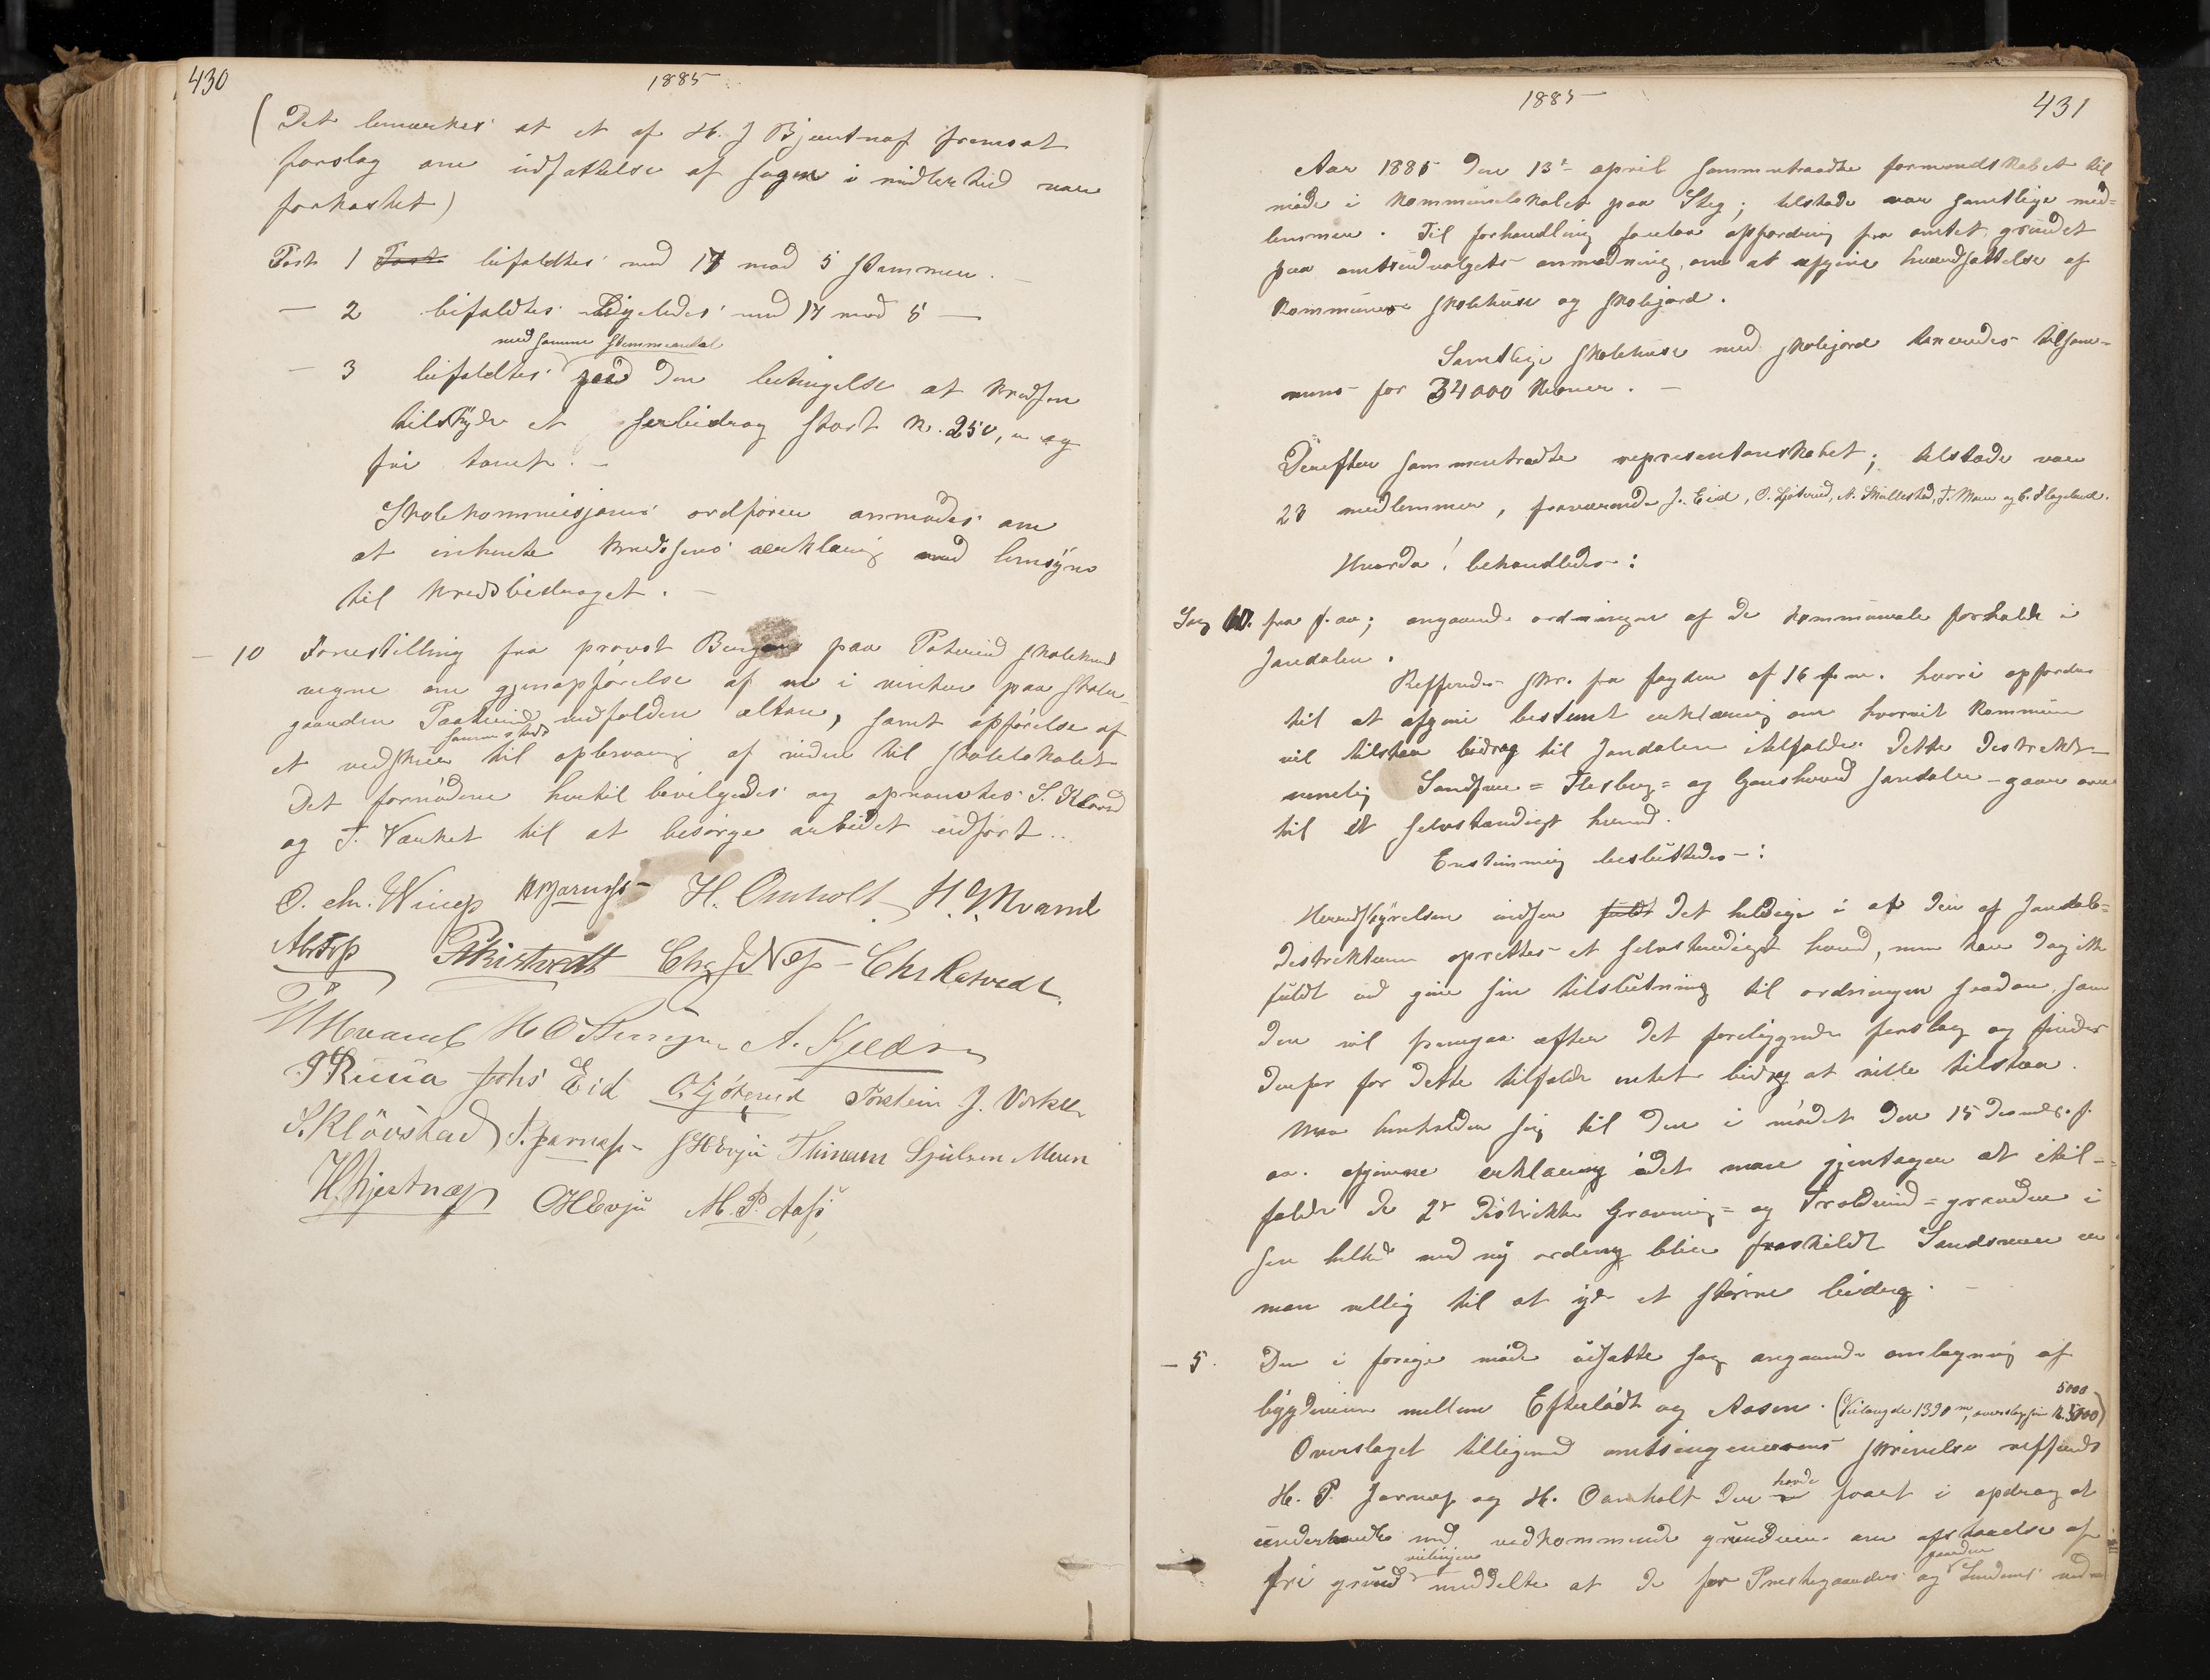 430
1885
(Det bemærkes at et af H. J Bjærtnæs fremsat
forslag om udsættelse af sagen i midlertid var
forkastet)
Post 1 Post bifaldtes med 17 mod 5 stemmer.
— 2 bifaldtes ligeledes med 17 mod 5 —
med samme stemmeantal
— 3 bifaldtes paa den betingelse at kredsen
tilskyder et særbidrag stort kr. 250, " og
fri tomt. —
Skolekommisjons ordfører anmodes om
at indhente kredsens erklæring med hensyn
til kredsbidraget. —
— 10 Forestilling fra provst paa skolekreds
vegne om gjenopførelse af en i vinter paa skole-
gaarden nedfalden altan, samt opførelse af
sammesteds
et vedskur til opbevaring af veden til skolelokalet
Det fornødne hertil bevilgedes og opnævntes S. Kløvstad
og T. Værket til at besørge arbeidet udført..
O. Chr. Wiig H. Omholt H. Mvand
Chr Ratvedt
A. Kjeldsen
J Ruua Johs Eid O. Ljøterud Torstein J. Værket
S. Kløvstad S. Jarnæss J H Evju Thimann Sjulsen Muen
H. Bjertnæss O H Evju H. P. Aass
1885
431
Aar 1885 den 13de april sammentraadte formandskabet til
møde i kommunelokalet paa Steg; tilstede var samtlige med=
lemmer. Til forhandling foretoges opfordring fra amtet grundet
paa amtsudvalgets anmodning, om at afgive værdsættelse af
kommunens skolehuse og skolejord.
Samtlige skolehuse med skolejord takseredes tilsam-
mens for 34000 kroner. —
Derefter sammentraadte representantskabet; tilstede var
23 medlemmer, fraværende J. Eid, O. Ljøterud, A. Skollestad, T. Moen og C. Flageland.
Hvorda! behandledes:
Sag 10. fra f. aa; angaaende ordningen af de kommunale forholde i
Jondalen.
Refferedes skr. fra fogden af 16 f. m. hvori opfordres
til at afgive bestemt erklæring om hvorvit kommunen
vil tilstaa bidrag til Jondalen itilfælde dette distrikt—
nemlig Sandsvær= Flesberg= og Gransherred Jondalen—gaar over
til et selvstændigt herred.
Enstemmig besluttedes—:
Herredstyrelsen indser fuldt det heldige i at den af Jondals=
distrikterne oprettes et selvstændigt herred, men kan dog ikke
fuldt ud give sin tilslutning til ordningen saadan, som
den vil fremgaa efter det foreliggende forslag og finder
derfor for dette tilfælde intet bidrag at ville tilstaa.
Man henholder sig til den i mødet den 15 desember f.
aa. afgivne erklæring idet man gjentager at itil=
fælde de 2de distrikter Gravning= og Troldrud=grænden i
sin helhed ved ny ordning bliver fraskildt Sandsvær er
man villig til at yde et større bidrag. —
— 5. Den i forrige møde udsatte sag angaaende omlægning af
5000
bygdeveien mellem Efteløt og Aasen. (Veilængde 1390 m, overslagssum kr. 5000)
Overslaget tilligemed amtsingeniørens skrivelse refferedes
havde
H. P. Jarnæs og H. Oamholt der er faaet i opdrag at
underhandle med vedkommende grundeiere om afstaaelse af
veilinjen gaarden
fri grund meddelte at de for Prestegaardens og Lundens ved